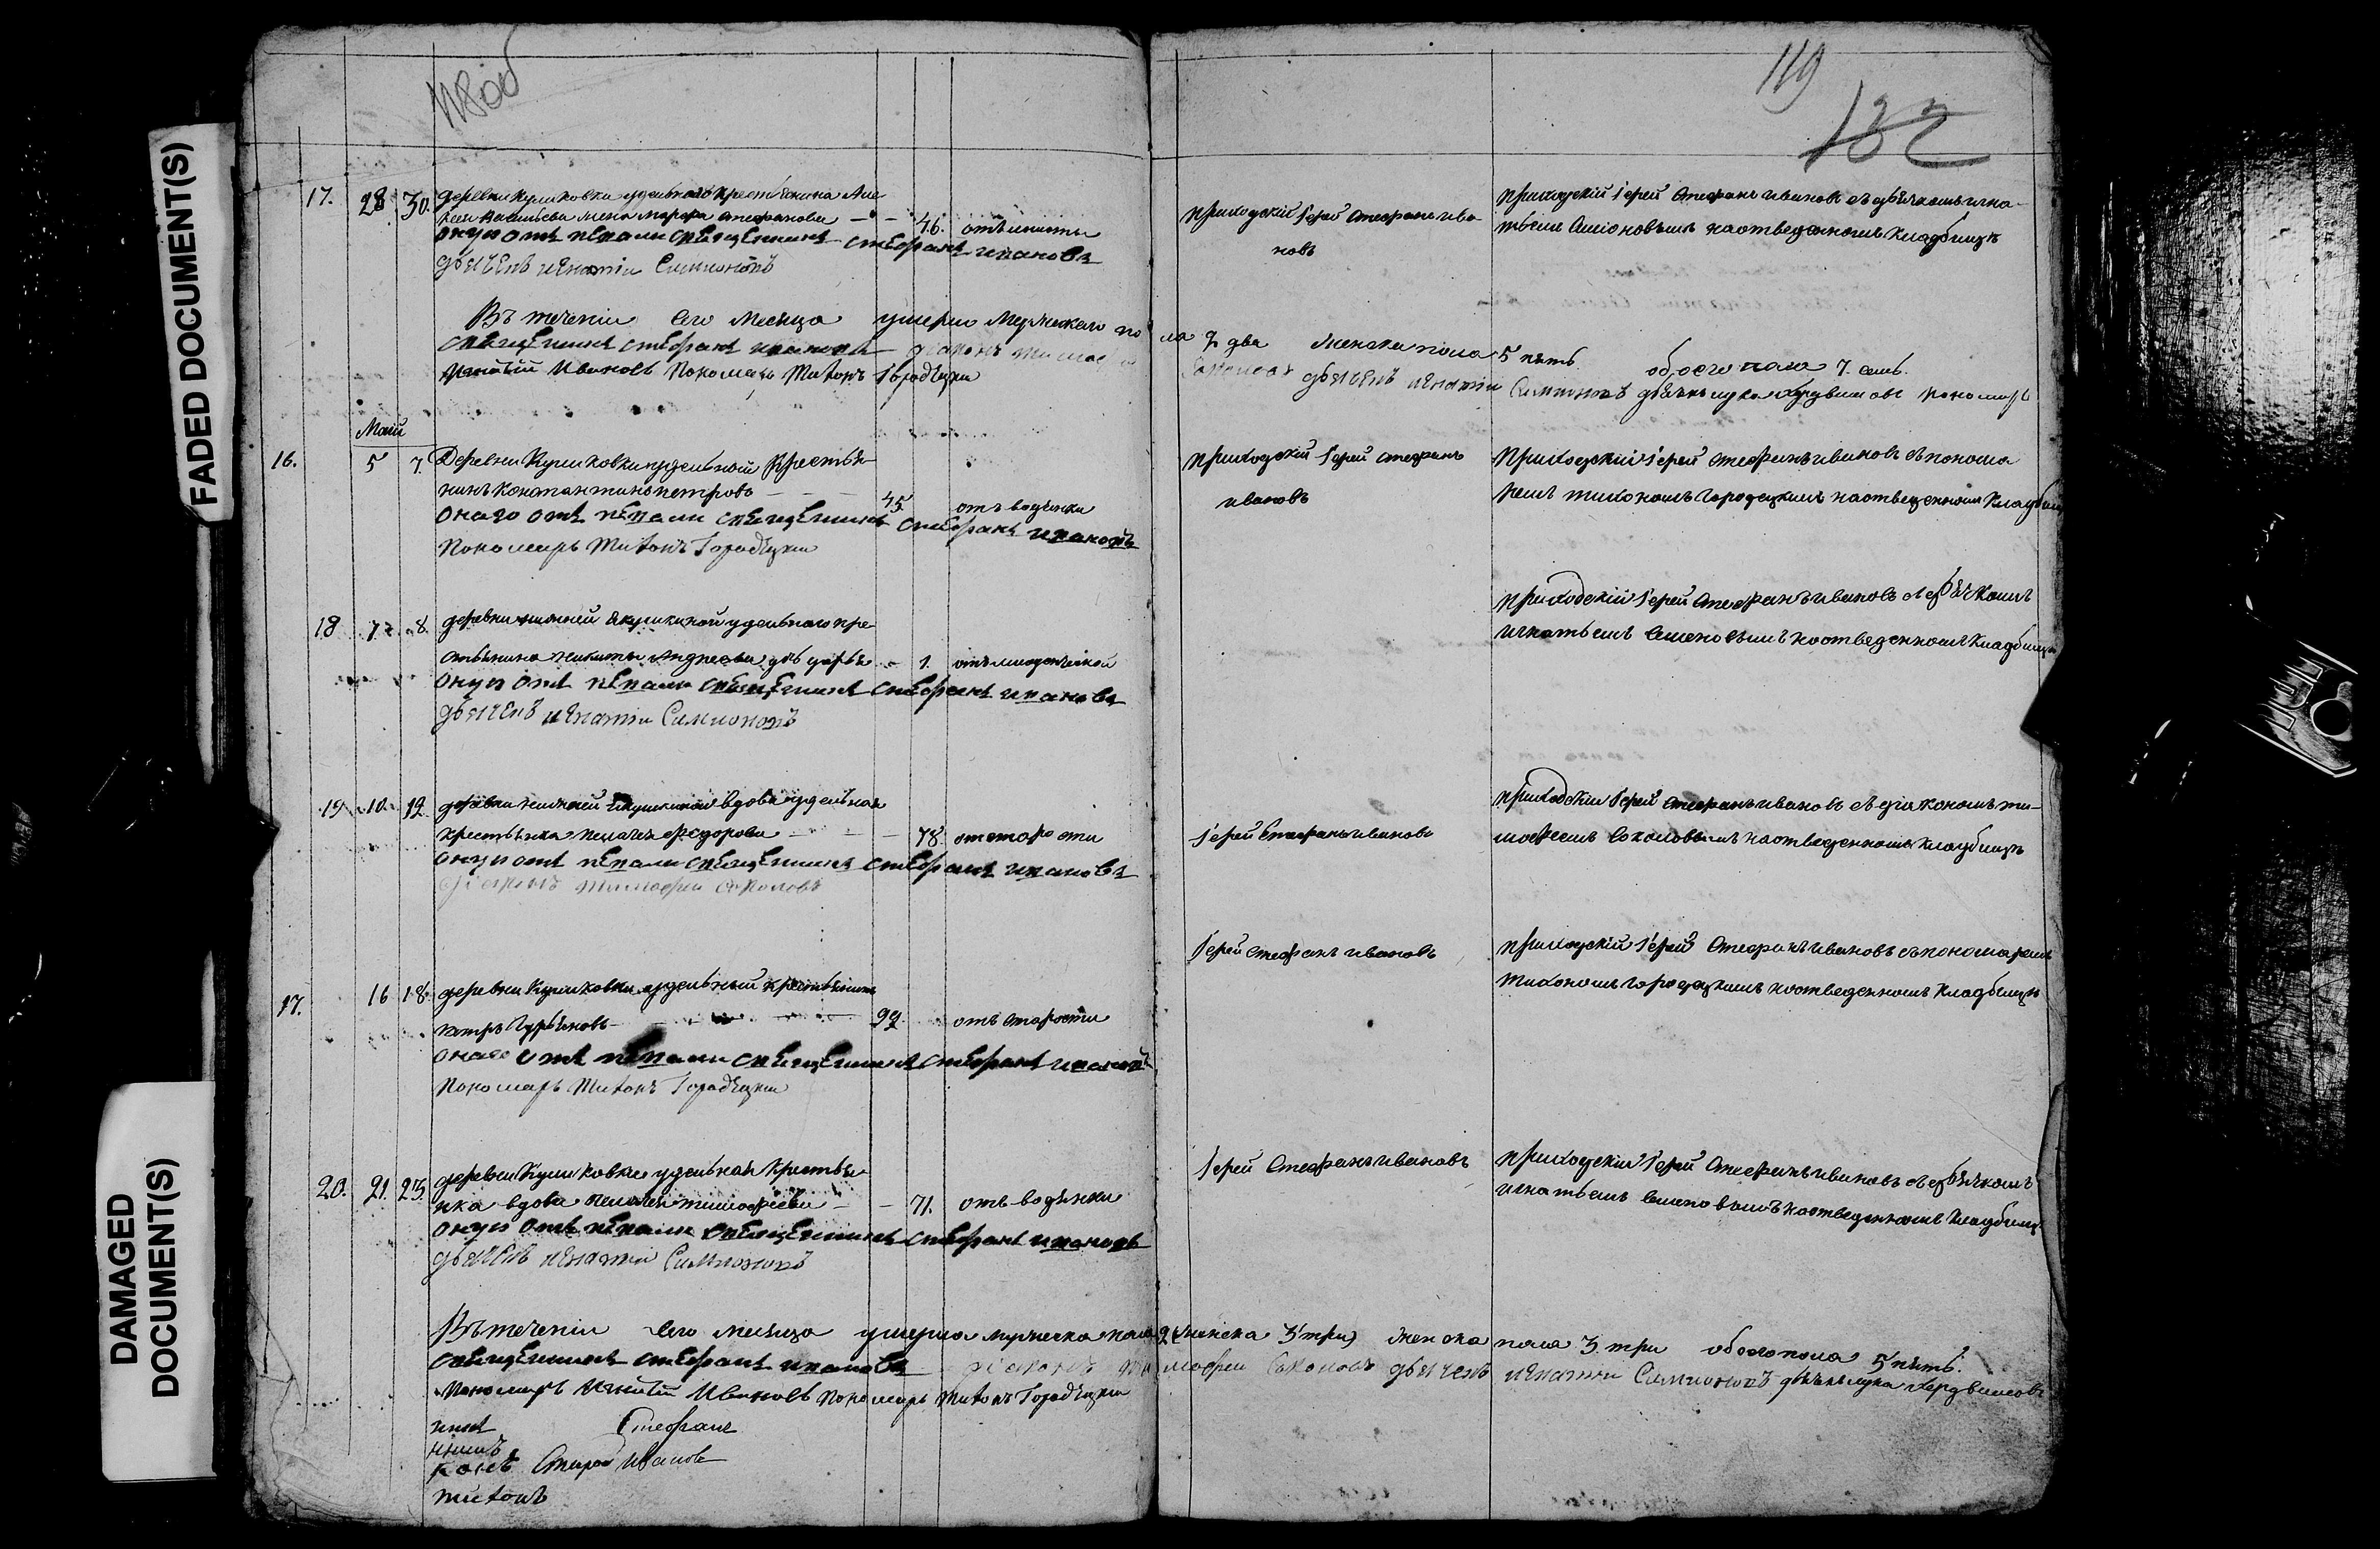 FADED DOCUMENT(S)
DAMAGED DOCUMENT(S)
118 об
119
132
17. 28 30. деревни Куликовки удельнаго крестьянина Але-
ксея Васильева жена Марфа Стефанова — 46. отъ
оную отпевали священникъ Стефанъ Ивановъ
дьячекъ Игнатий Симионовъ
Приходский Иерей Стефанъ Ива-
новъ
Приходский Иерей Стефанъ Ивановъ съ дьячкомъ Игна-
тьемъ Симионовымъ на отведенномъ кладбище
Въ течении сего месяца умерло мужескаго пола 2 два женска пола 5 пять обоего пола 7. семь.
священникъ Стефанъ Ивановъ диаконъ Тимофей Соколовъ дьячекъ Игнатий Симионовъ дьячекъ Лука пономарь
Игнатий Ивановъ Пономарь Тихонъ Городецкий
Маий
16. 5 7 Деревни Куликовки удельной крестья-
нинъ Константинъ Петровъ — 45. отъ водянки
онаго отпевали священникъ Стефанъ Ивановъ
Пономарь Тихонъ Городецкий
Приходский Иерей Стефанъ
Ивановъ
Приходский Иерей Стефанъ Ивановъ съ понома-
ремъ Тихономъ Городецкимъ на отведенномъ кладбище
18 7 8. деревни нижней Якушкиной удельнаго кре-
стьянина Никиты Андреева дочь Дарья — 1. отъ младенческой
оную отпевали священникъ Стефанъ Ивановъ
дьячекъ Игнатий Симионовъ
Приходский Иерей Стефанъ Ивановъ съ дьячкомъ
Игнатьемъ Семеновымъ на отведенномъ кладбище
19. 10. 12. деревни нижней Якушкиной вдова удельная
крестьянка Пелагея Федорова — 78. от старости
оную отпевали священникъ Стефанъ Ивановъ
диаконъ Тимофей Соколовъ
Иерей Стефанъ Ивановъ
Приходский Иерей Стефанъ Ивановъ съ диакономъ Ти-
мофеемъ Соколовымъ на отведенномъ кладбище
17. 16 18. деревни Куликовки удельный крестьянинъ
Петръ Гурьяновъ — 92. отъ старости
онаго отпевали священникъ Стефанъ Ивановъ
Пономарь Тихонъ Городецкий
Иерей Стефанъ Ивановъ
Приходский Иерей Стефанъ Ивановъ съ пономаремъ
Тихономъ Городецкимъ на отведенномъ кладбище
20. 21. 23. деревни Куликовки удельная крестья-
нка вдова Пелагея Тимофеева — 71. отъ водянки
оную отпевали священникъ Стефанъ Ивановъ
дьячекъ Игнатий Симионовъ
Иерей Стефанъ Ивановъ
Приходский Иерей Стефанъ Ивановъ съ дьячкомъ
Игнатьемъ Семеновымъ на отведенномъ кладбище
Въ течении сего месяца умерло мужеска пола 2 (женска 3 три) женска пола 3. три обоего пола 5 пять.
священникъ Стефанъ Ивановъ диаконъ Тимофей Соколовъ дьячекъ Игнатий Симионовъ дьячекъ Лука
Пономарь Игнатий Ивановъ Пономарь Тихонъ Городецкий
Стефанъ
Ивановъ
Тихонъ